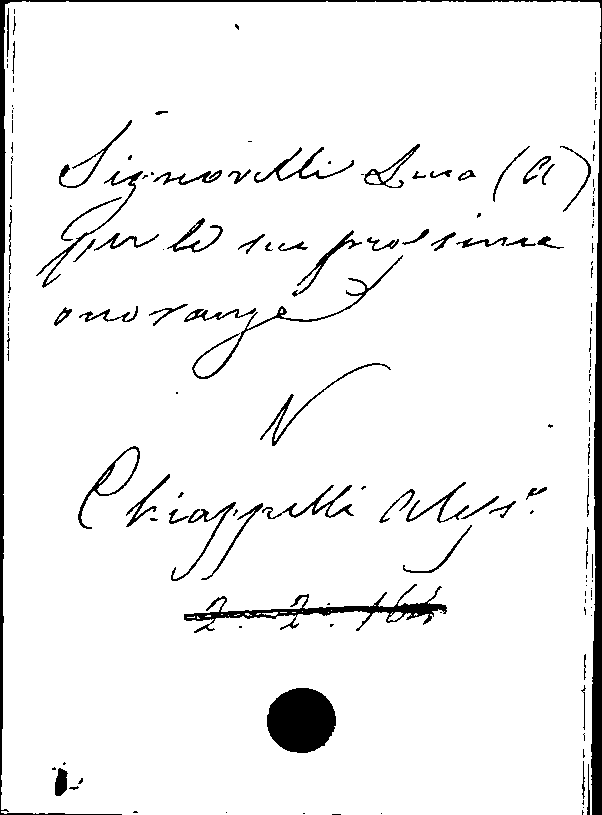 Signorelli Luca (A)
per le sue prossime
onoranze
V
Chiappelli Aless.º
2. 2. 164